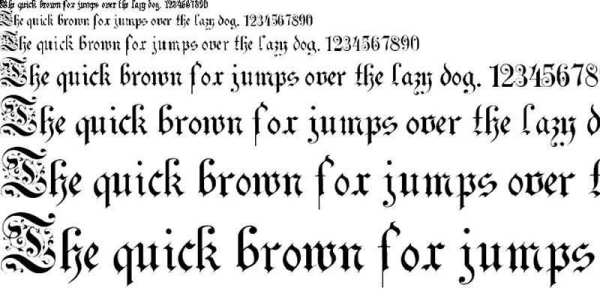 The quick brown fox jumps over the lazy dog. 1234567890
The quick brown fox jumps over the lazy dog. 1234567890
The quick brown fox jumps over the lazy dog. 1234567890
The quick brown fox jumps over the lazy dog. 12345678
The quick brown fox jumps over the lazy d
The quick brown fox jumps over t
The quick brown fox jumps